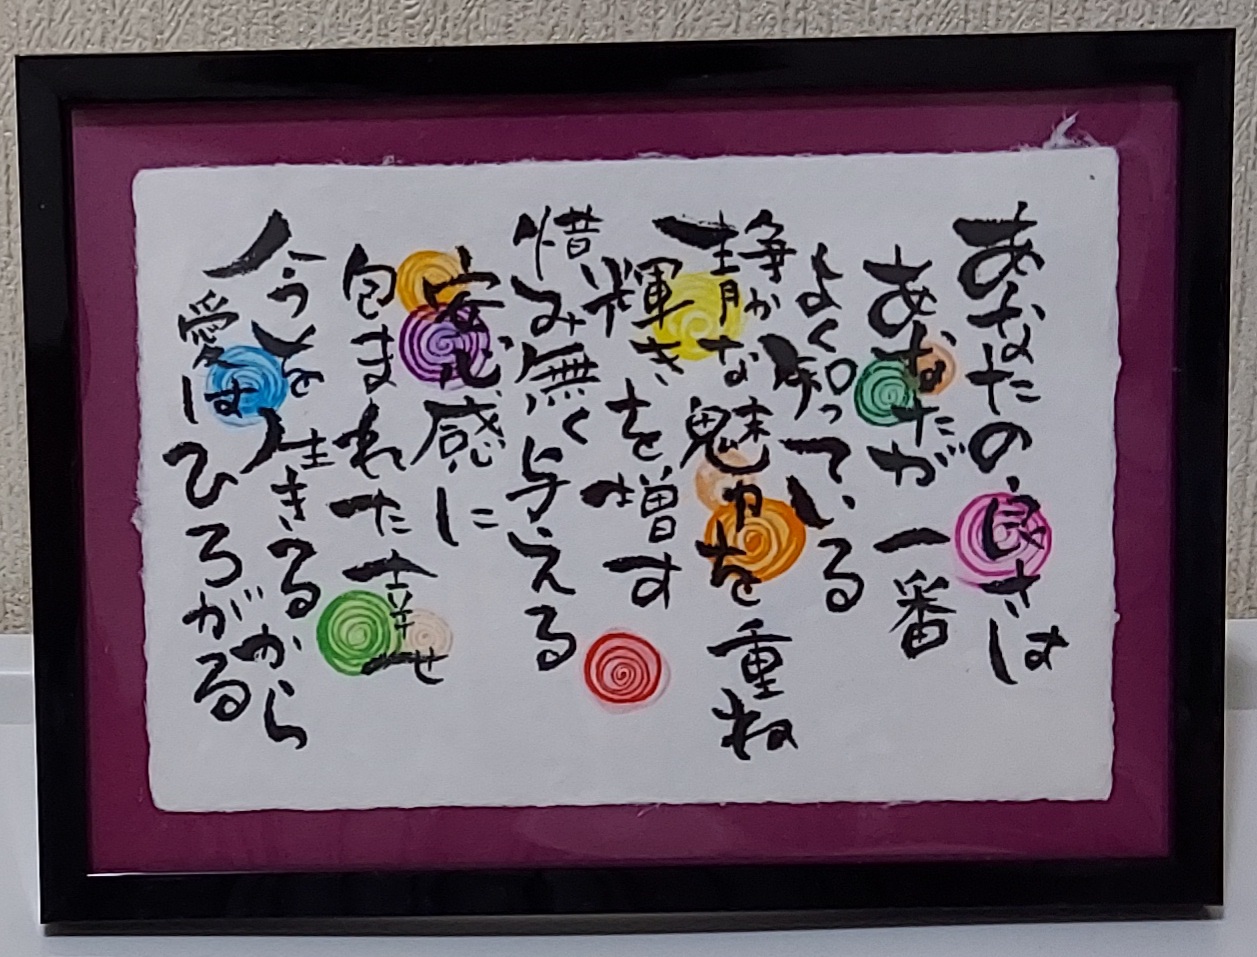 あなたの良さは
あなたが一番
よく知っている
静かな魅力を重ね
輝きを増す
惜み無く与える
安心感に
包まれた幸せ
今を生きるから
愛はひろがる